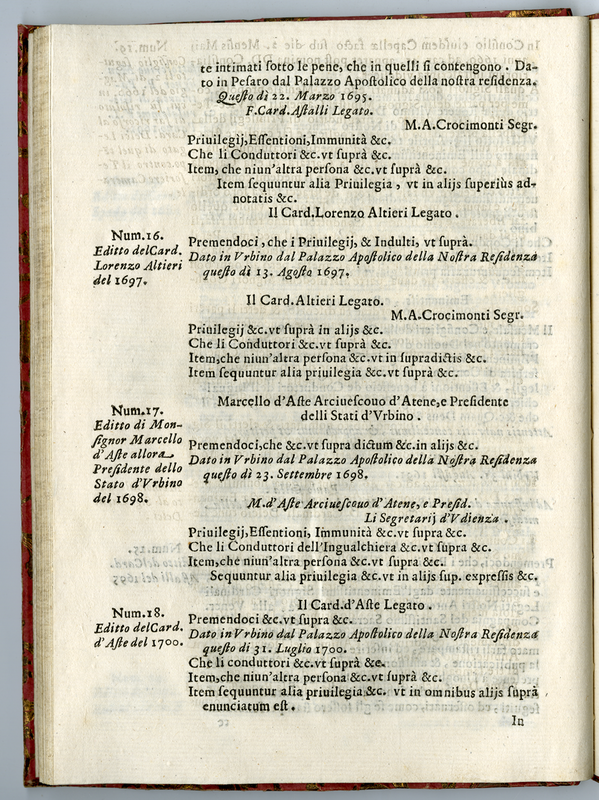 te intimati sotto le pene, che in quelli si contengono . Da-
to in Pesaro dal Palazzo Apostolico della nostra residenza.
Questo dì 22. Marzo 1695.
F.Card.Astalli Legato.
M.A.Crocimonti Segr.
Priuilegij,Essentioni,Immunità &c.
Che li Conduttori &c.vt suprà &c.
Item, che niun'altra persona &c.vt suprà &c.
Item sequuntur alia Priuilegia , vt in alijs superiùs ad-
notatis &c.
Il Card.Lorenzo Altieri Legato .
Num.16.
Editto delCard.
Lorenzo Altieri
del 1697.
Premendoci , che i Priuilegij, & Indulti, vt suprà.
Dato in Vrbino dal Palazzo Apostolico della Nostra Residenza
questo dì 13. Agosto 1697.
Il Card.Altieri Legato.
M.A.Crocimonti Segr.
Priuilegij &c.vt suprà in alijs &c.
Che li Conduttori &c.vt suprà &c.
Item,che niun'altra persona &c.vt in supradictis &c.
Item sequuntur alia priuilegia &c.vt suprà &c.
Num.17.
Editto di Mon-
signor Marcello
d'Aste allora
Presidente dello
Stato d'Vrbino
del 1698.
Marcello d'Aste Arciuescouo d'Atene,e Presidente
delli Stati d'Vrbino .
Premendoci,che &c.vt supra dictum &c.in alijs &c.
Dato in Vrbino dal Palazzo Apostolico della Nostra Residenza
questo dì 23. Settembre 1698.
M.d'Aste Arciuescouo d'Atene, e Presid.
Li Segretarij d'Vdienza .
Priuilegij,Essentioni, Immunità &c.vt supra &c.
Che li Conduttori dell'Ingualchiera &c.vt supra &c.
Item,che niun'altra persona &c.vt supra &c.
Sequuntur alia priuilegia &c.vt in alijs sup. expressis &c.
Num.18.
Editto delCard.
d'Aste del 1700.
Il Card.d'Aste Legato .
Premendoci &c.vt supra &c.
Dato in Vrbino dal Palazzo Apostolico della Nostra Residenza
questo dì 31. Luglio 1700.
Che li conduttori &c.vt suprà &c.
Item,che niun'altra persona &c.vt suprà &c.
Item sequuntur alia priuilegia &c. vt in omnibus alijs suprà
enunciatum est .
In